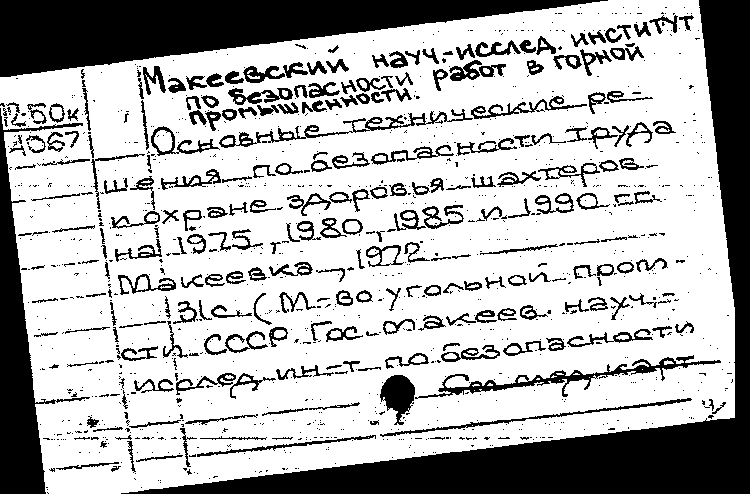 Макеевский науч.-исслед. институт
по безопасности работ в горной
промышленности.
12-50к
А067
Основные технические ре-
шения по безопасности труда
и охране здоровья шахтеров
на 1975, 1980, 1985 и 1990 гг.
Макеевка, 1972.
31с. (М-во угольной пром-
сти СССР. Гос. Макеев. науч.-
исслед. ин-т по безопасности
См. след. карт